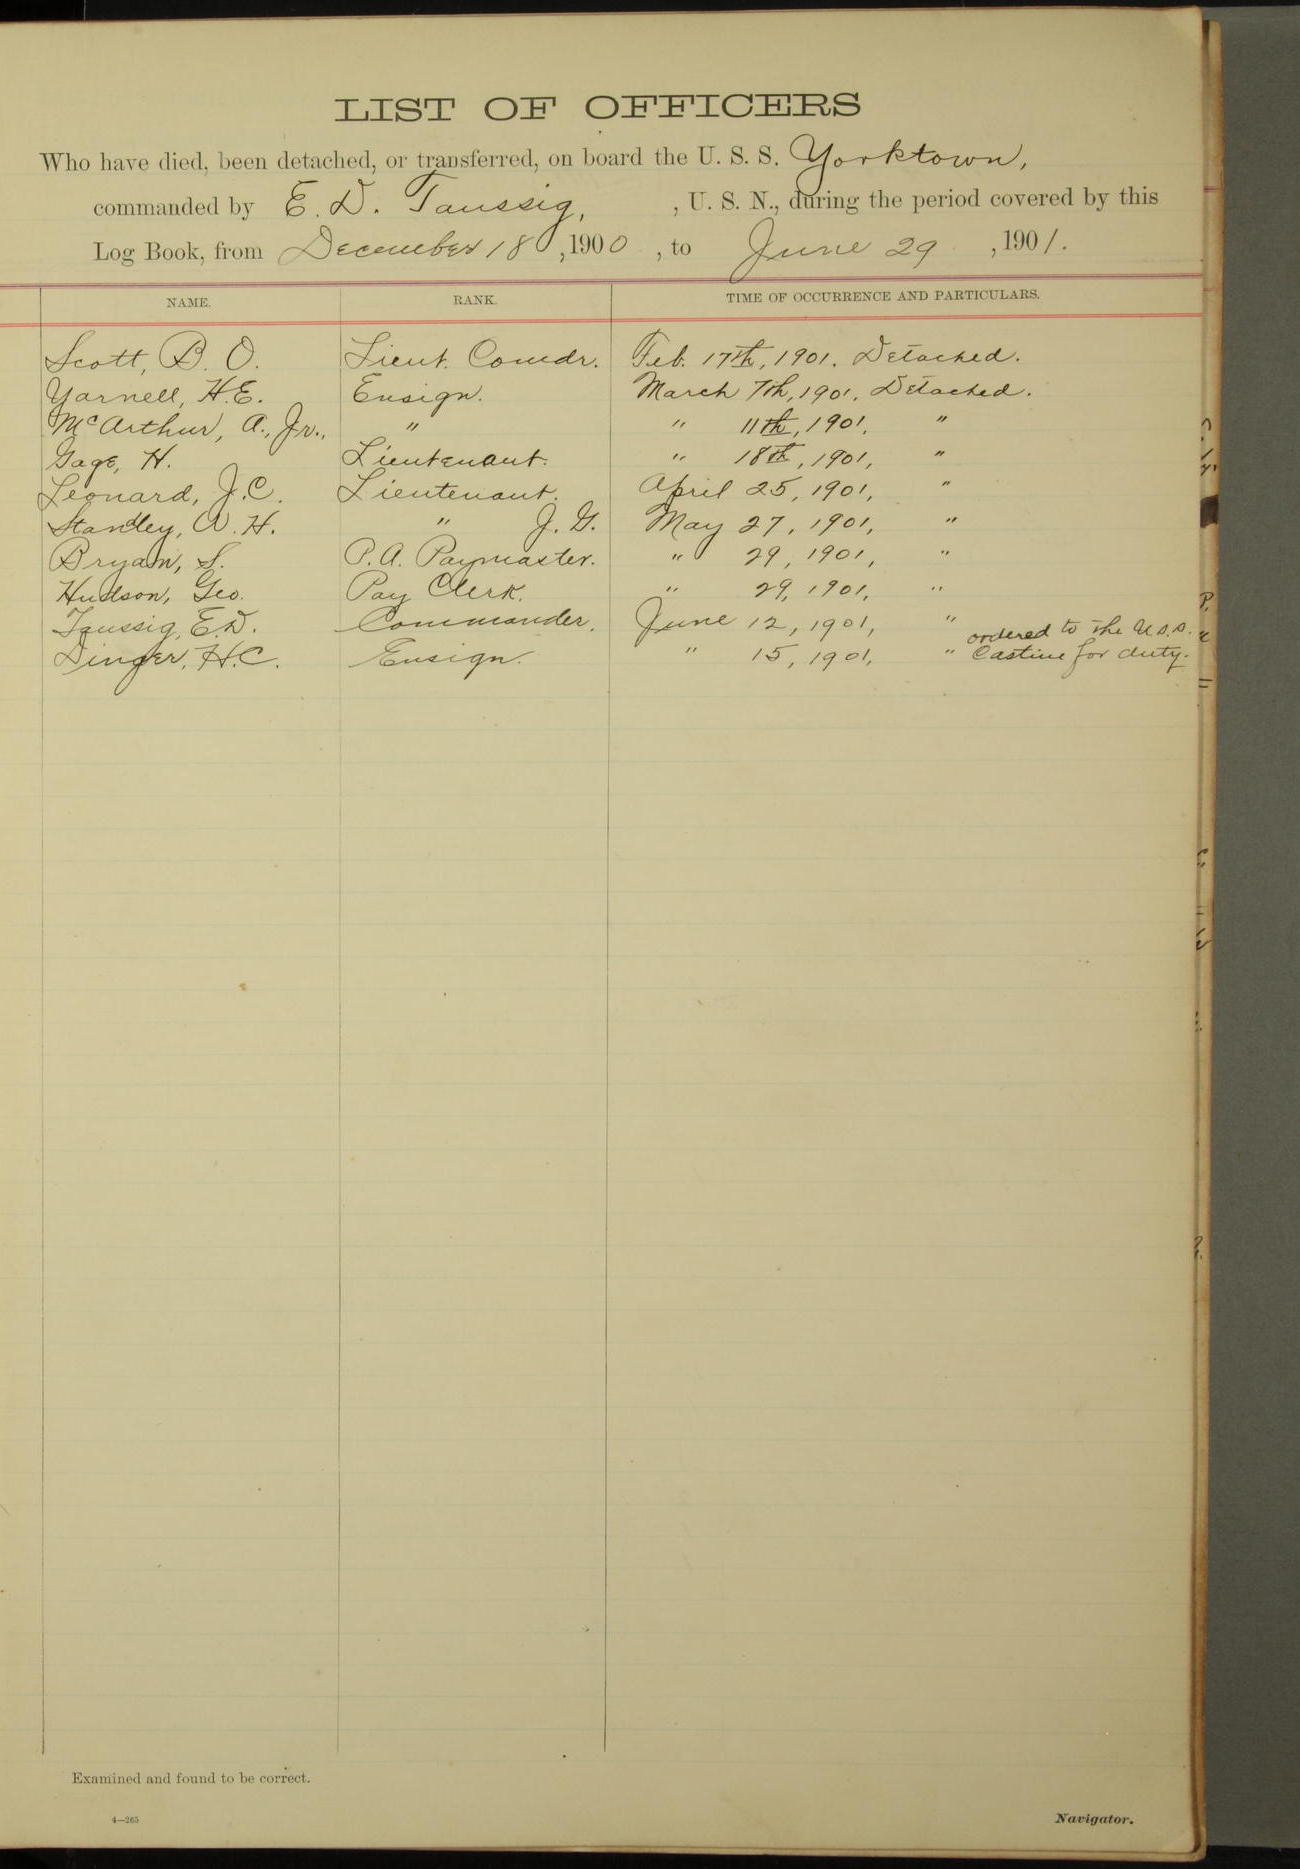 LIST OF OFFICERS
Who have died, been detached, or transferred, on board the U. S. S. Yorktown,
commanded by E. D. Taussig, , U. S. N., during the period covered by this
Log Book, from December 18, 1900, to June 29, 1901.
NAME. RANK. TIME OF OCCURRENCE AND PARTICULARS.
Scott, B. O. Lieut. Comdr. Feb. 17th, 1901. Detached.
Yarnell, H.E. Ensign. March 7th, 1901, Detached.
McArthur, A., Jr., " " 11th, 1901, "
Gage, H. Lieutenant. " 18th, 1901, "
Leonard, J.C. Lieutenant. April 25, 1901, "
Standley, W. H. " J. G. May 27, 1901, "
Bryan, S. P.A. Paymaster. " 29, 1901, "
Hudson, Geo. Pay Clerk. " 29, 1901, "
Taussig, E.D. Commander. June 12, 1901, "
ordered to the U.S.S.
Dinger, H.C. Ensign. " 15, 1901, " Castine for duty.
Examined and found to be correct.
4—265
Navigator.